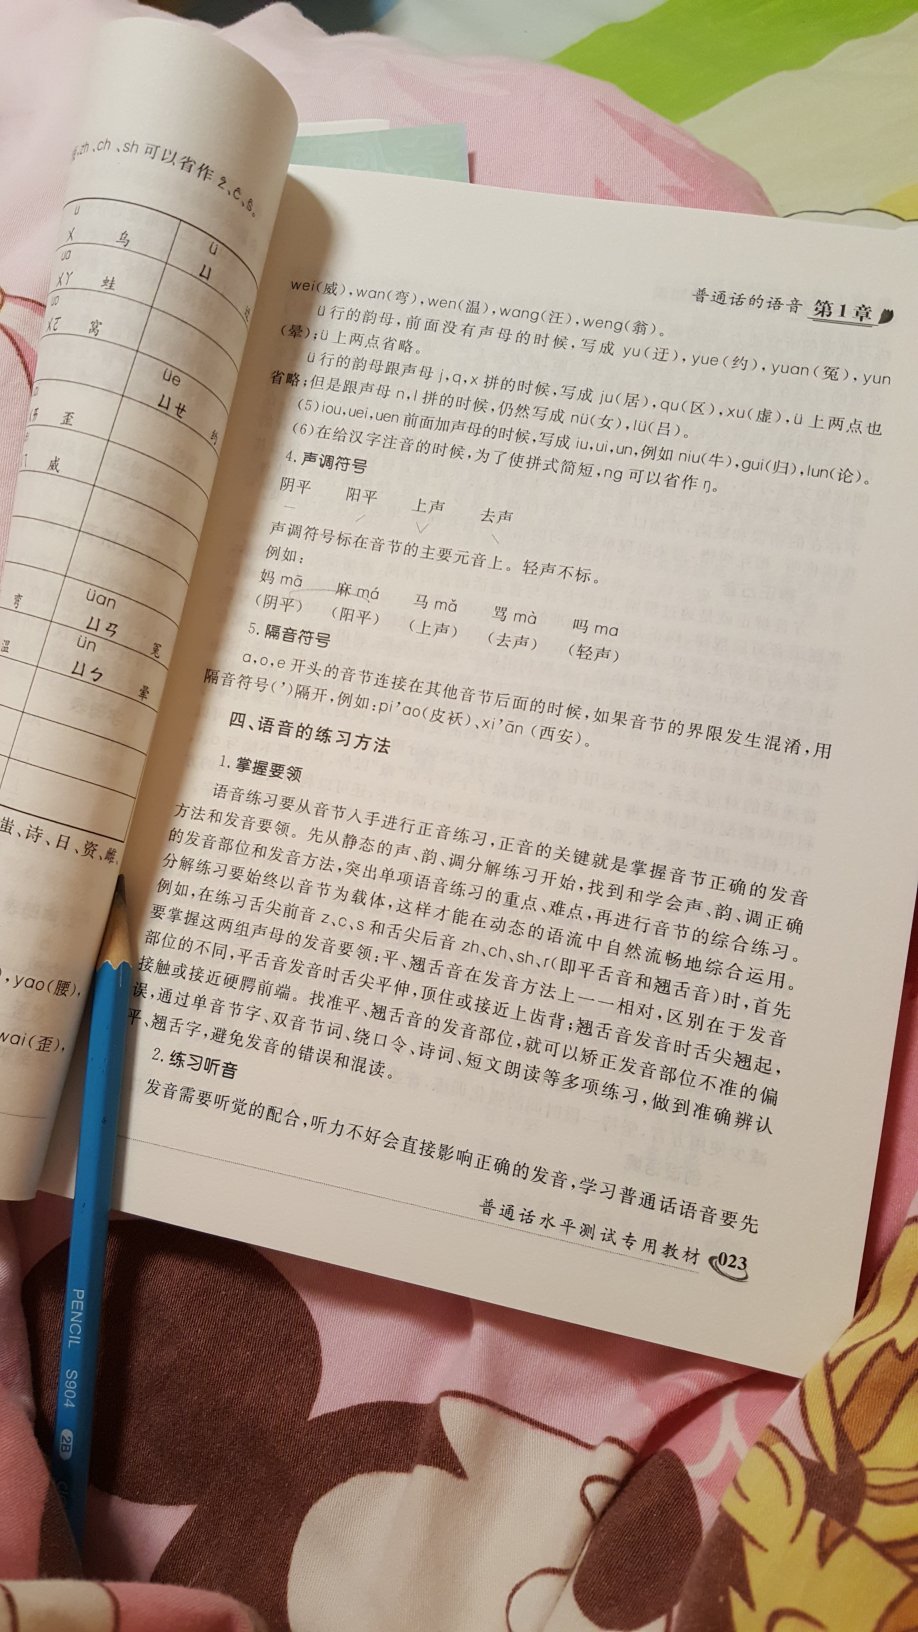 zh、ch、sh可以省作ẑ、ĉ、ŝ。
u
ㄨ 乌
ü
ㄩ
ua
ㄨㄚ 蛙
uo
ㄨㄛ 窝
üe
ㄩㄝ 约
歪
威
üan
ㄩㄢ 冤
弯
ün
ㄩㄣ 晕
温
蚩、诗、日、资、雌、
,yao(腰),
wai(歪),
普通话的语音 第1章
wei(威),wan(弯),wen(温),wang(汪),weng(翁)。
ü行的韵母,前面没有声母的时候,写成 yu(迂),yue(约),yuan(冤),yun
(晕);ü上两点省略。
ü行的韵母跟声母j,q,x拼的时候,写成ju(居),qu(区),xu(虚),ü上两点也
省略;但是跟声母n,l拼的时候,仍然写成nü(女),lü(吕)。
(5)iou,uei,uen前面加声母的时候,写成iu,ui,un,例如niu(牛),gui(归),lun(论)。
(6)在给汉字注音的时候,为了使拼式简短,ng可以省作ŋ。
4. 声调符号
阴平 阳平 上声 去声
ˉ ˊ ˇ ˋ
声调符号标在音节的主要元音上。轻声不标。
例如:
妈 mā 麻 má 马 mǎ 骂 mà 吗 ma
(阴平) (阳平) (上声) (去声) (轻声)
5. 隔音符号
a,o,e开头的音节连接在其他音节后面的时候,如果音节的界限发生混淆,用
隔音符号(’)隔开,例如:pi’ao(皮袄)、xi’ān(西安)。
四、语音的练习方法
1. 掌握要领
语音练习要从音节入手进行正音练习,正音的关键就是掌握音节正确的发音
方法和发音要领。先从静态的声、韵、调分解练习开始,找到和学会声、韵、调正确
的发音部位和发音方法,突出单项语音练习的重点、难点,再进行音节的综合练习。
分解练习要始终以音节为载体,这样才能在动态的语流中自然流畅地综合运用。
例如,在练习舌尖前音z、c、s和舌尖后音zh、ch、sh、r(即平舌音和翘舌音)时,首先
要掌握这两组声母的发音要领:平、翘舌音在发音方法上一一相对,区别在于发音
部位的不同,平舌音发音时舌尖平伸,顶住或接近上齿背;翘舌音发音时舌尖翘起,
接触或接近硬腭前端。找准平、翘舌音的发音部位,就可以矫正发音部位不准的偏
误,通过单音节字、双音节词、绕口令、诗词、短文朗读等多项练习,做到准确辨认
平、翘舌字,避免发音的错误和混读。
2. 练习听音
发音需要听觉的配合,听力不好会直接影响正确的发音,学习普通话语音要先
普通话水平测试专用教材 023
PENCIL S904 2B